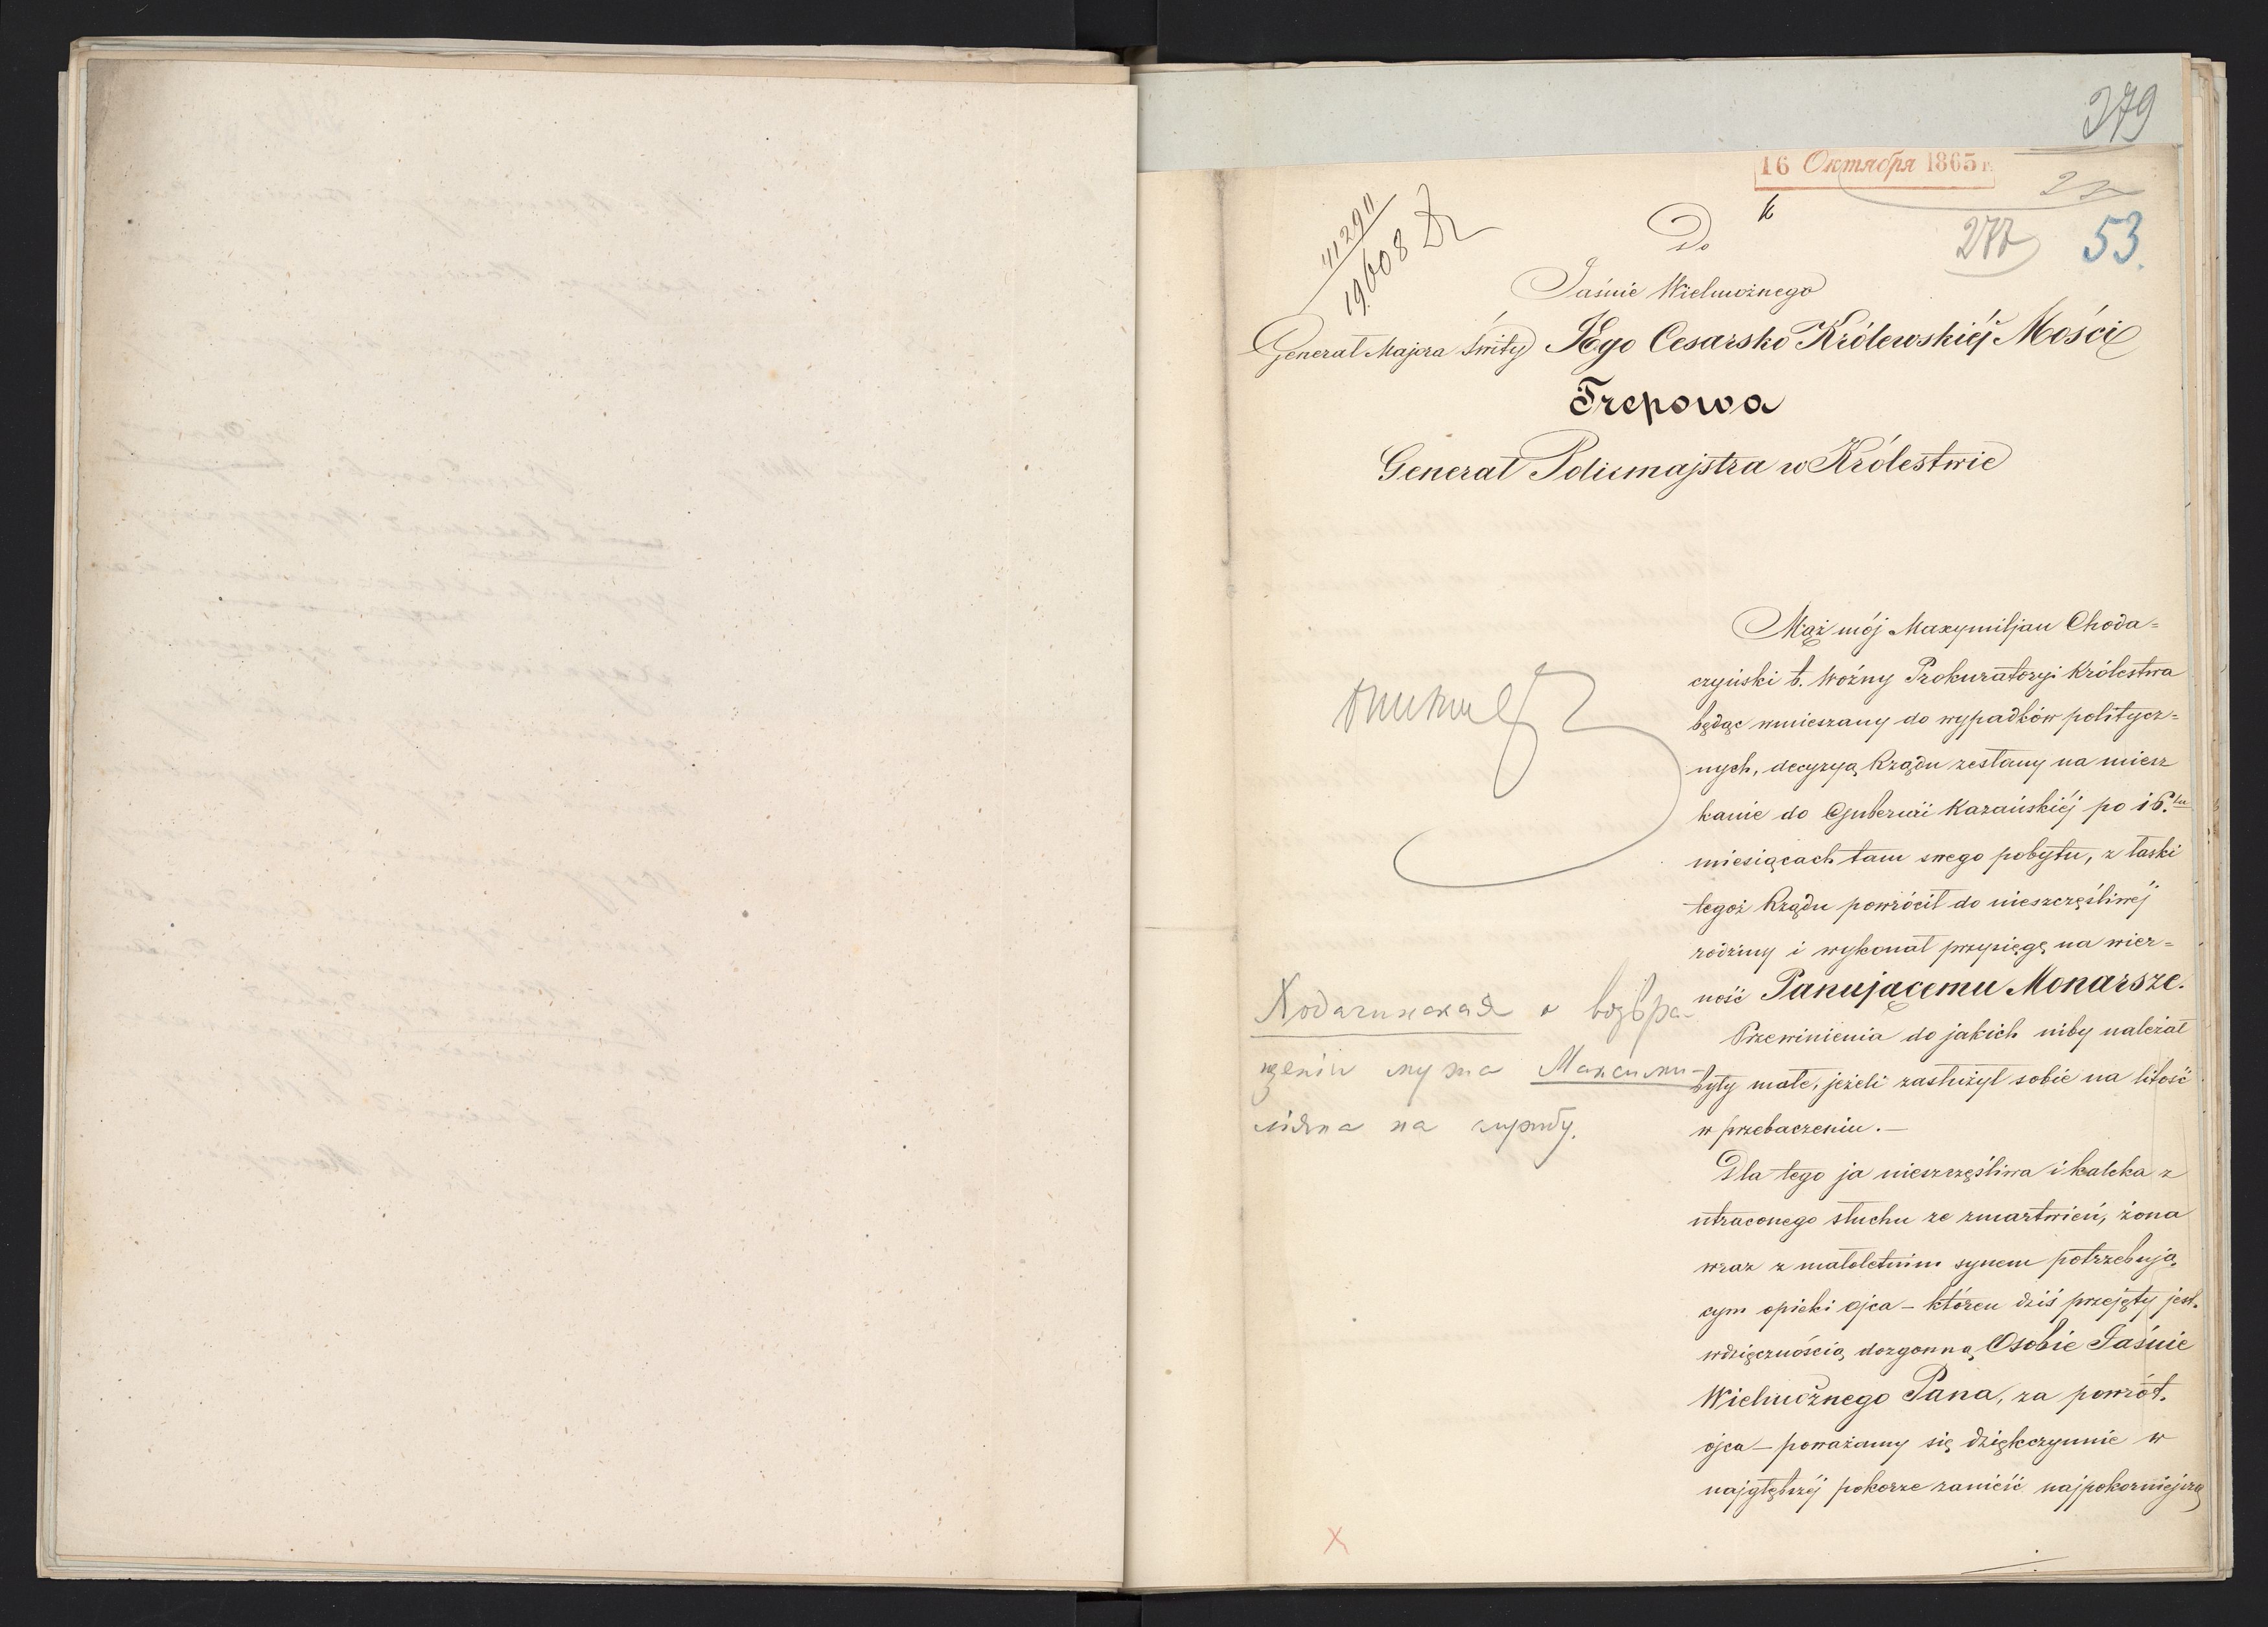 379
16 Октября 1865 г.
22
k
277
53.
41290
19.608
Do
Jaśnie Wielmożnego
Generał Majora Świty JEgo Cesarsko Królewskiéj Mości
Trepowa
Generał Policmajstra w Królestwie
Mąż mój Maxymiljan Choda=
czyński b. Woźny Prokuratoryi Królestwa
będąc wmieszany do wypadków politycz=
nych, decyzyą Rządu zesłany na miesz
kanie do Gubernii Kazańskiéj po 16.tu
miesiącach tam swego pobytu, z łaski
tegoż Rządu powrócił do nieszczęśliwéj
rodziny i wykonał przysięgę na wier=
ność Panującemu Monarsze.
Przewinienia do jakich niby należał
były małe, jeżeli zasłużył sobie na litość
w przebaczeniu.—
Dla tego ja nieszczęśliwa i kaleka z
utraconego słuchu ze zmartwień, żona
wraz z małoletnim synem potrzebują,
cym opieki ojca — któren dziś przejęty jest.
wdzięcznością dozgonną Osobie Jaśnie
Wielmożnego Pana, za powrót.
ojca — poważamy się dziękczynnie w
najgłębszéj pokorze zanieść najpokorniejszą
Ходачинская о возвра-
щении мужа Максими-
лiяна на службу.